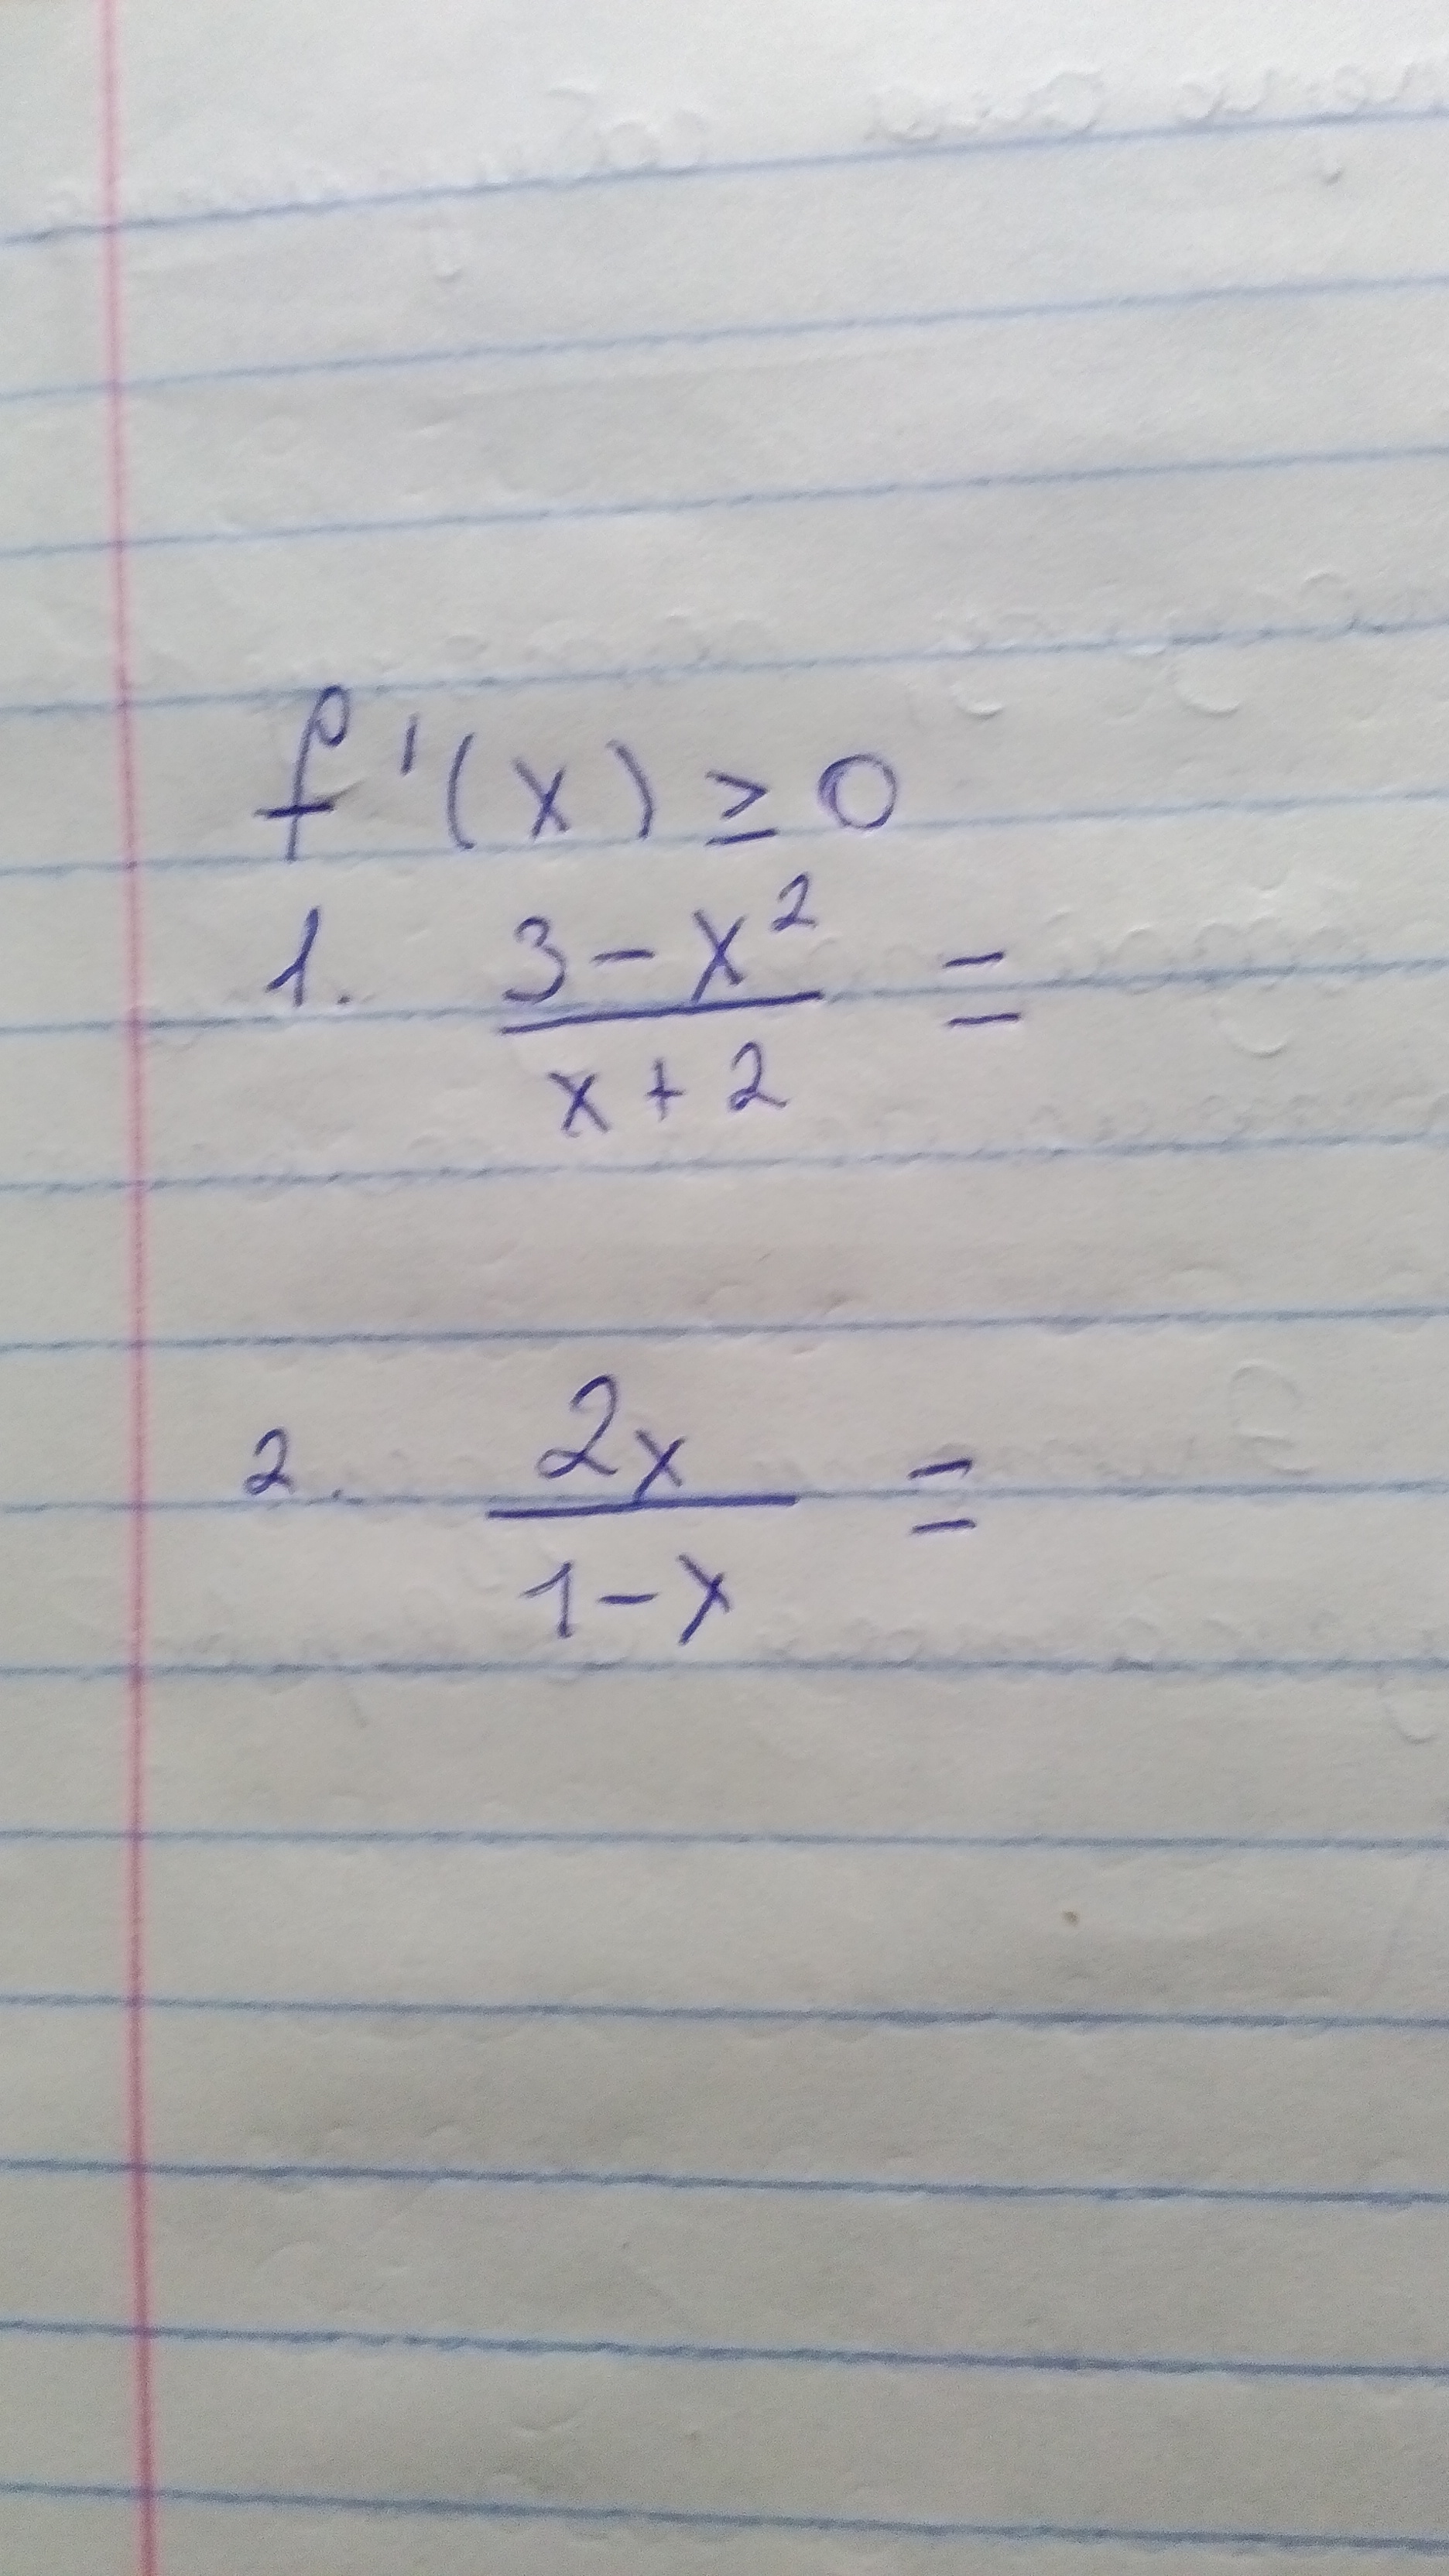 f'(x) ≥ 0
1. (3 - x²)/(x + 2) =
2. 2x/(1 - x) =